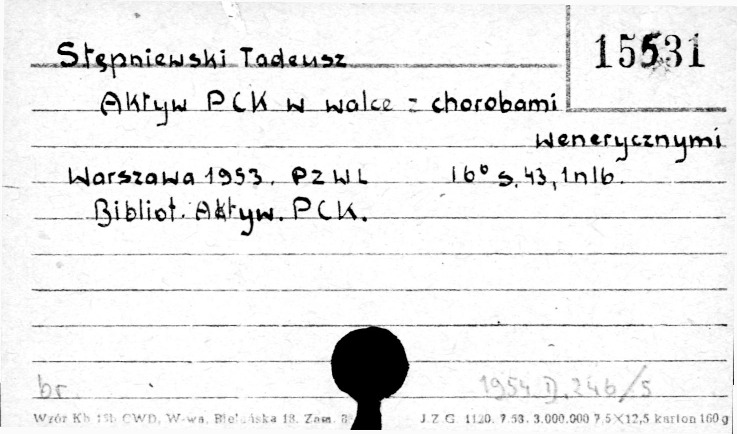 15531
Stępniewski Tadeusz
Aktyw PCK w walce z chorobami
wenerycznymi
Warszawa 1953. PZWL 16° s. 43, 1 nlb.
Bibliot. Aktyw. PCK.
br. 1954 D. 246/s
Wzór Kb 15b CWD, W-wa, Bielańska 18. Zam. J.Z.G. 1120. 7.53. 3.000.000 7,5×12,5 karton 160 g